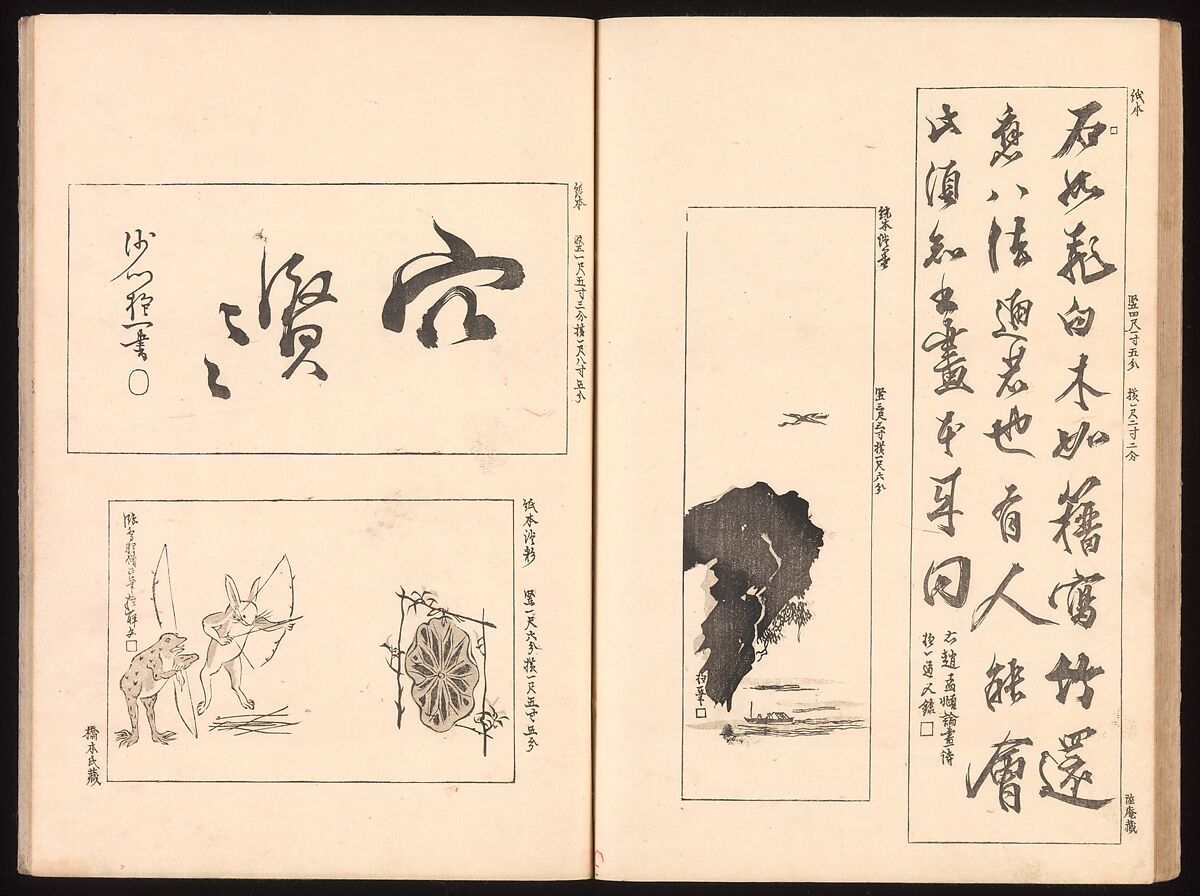 紙本
竪四尺一寸五分 横一尺二寸二分
石如飛白木如籀寫竹還
應八法通若也有人能會
此須知書畫本来同
右趙孟頫論畫詩
抱一道人録
庵藏
絹本淡墨
横一尺六分
抱一筆
紙本 竪一尺五寸三分横一尺八寸五分
穴
賢
々々
沙門抱一書
紙本淡彩 竪一尺六分横一尺五寸五分
鳥羽僧正筆
橋本氏藏